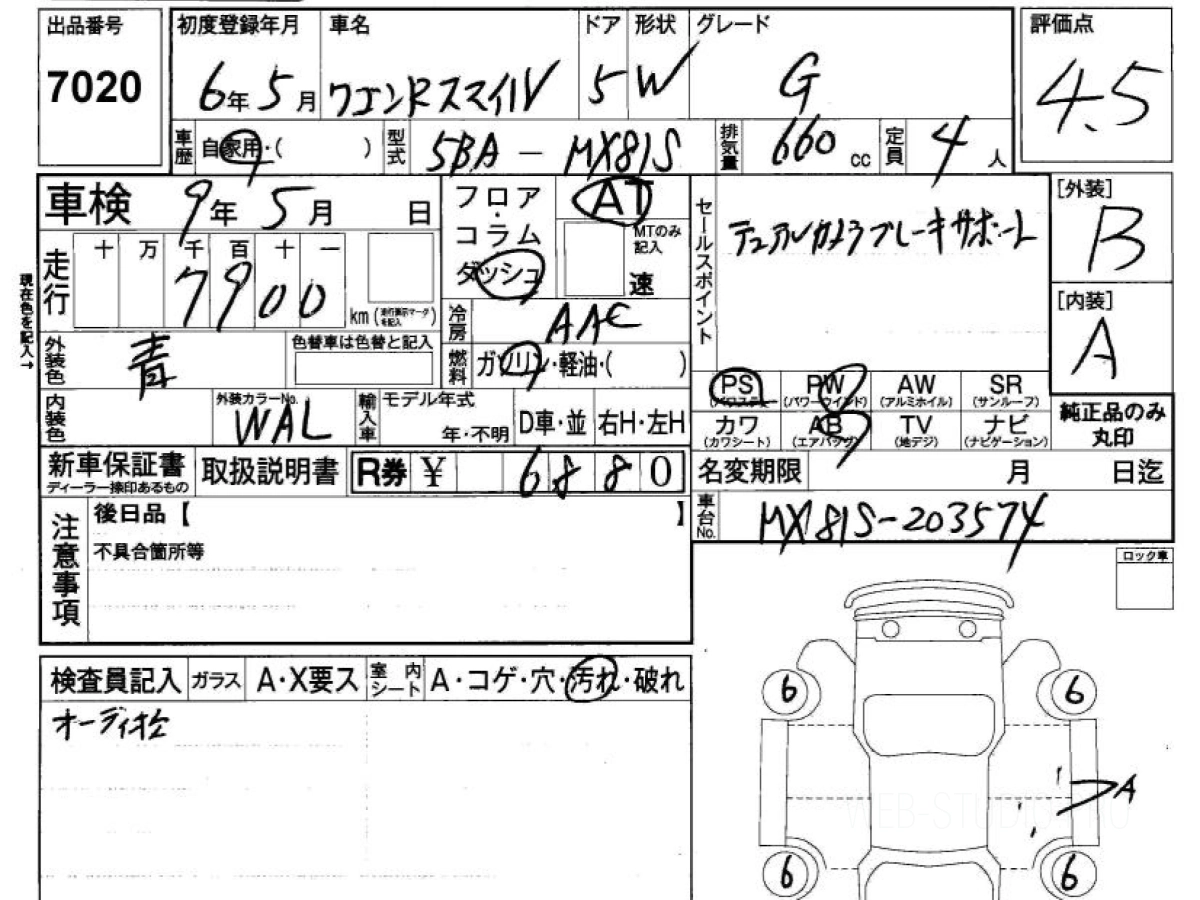 出品番号 初度登録年月 車名 ドア 形状 グレード 評価点
7020 6年 5月 ワゴンRスマイル 5 W G 4.5
車歴 自家用・( ) 型式 5BA-MX81S 排気量 660cc 定員 4人
車検 9年 5月 日
フロア・コラム ダッシュ AT MTのみ記入 速
セールスポイント デュアルカメラブレーキサポート
[外装] B
現在色を記入→
走行 十 万 千 百 十 一
7900 km (走行表示マークを記入)
[内装] A
冷房 AAC
外装色 青 色替車は色替と記入
燃料 ガソリン・軽油・( )
PS (パワステ) PW (パワーウインド) AW (アルミホイル) SR (サンルーフ)
カワ (カワシート) AB (エアバッグ) TV (地デジ) ナビ (ナビゲーション)
純正品のみ丸印
内装色 外装カラーNo. WAL 輸入車 モデル年式 年・不明 D車・並 右H・左H
新車保証書 ディーラー捺印あるもの 取扱説明書 R券 ¥ 6880
名変期限 月 日迄
車台No. MX81S-203574
注意事項 後日品【 】
不具合箇所等
ロック車
検査員記入 ガラス A・X要ス 室内シート A・コゲ・穴・汚れ・破れ
オーディオ欠
6 6
A
WEB-STUDIO.PRO
6 6